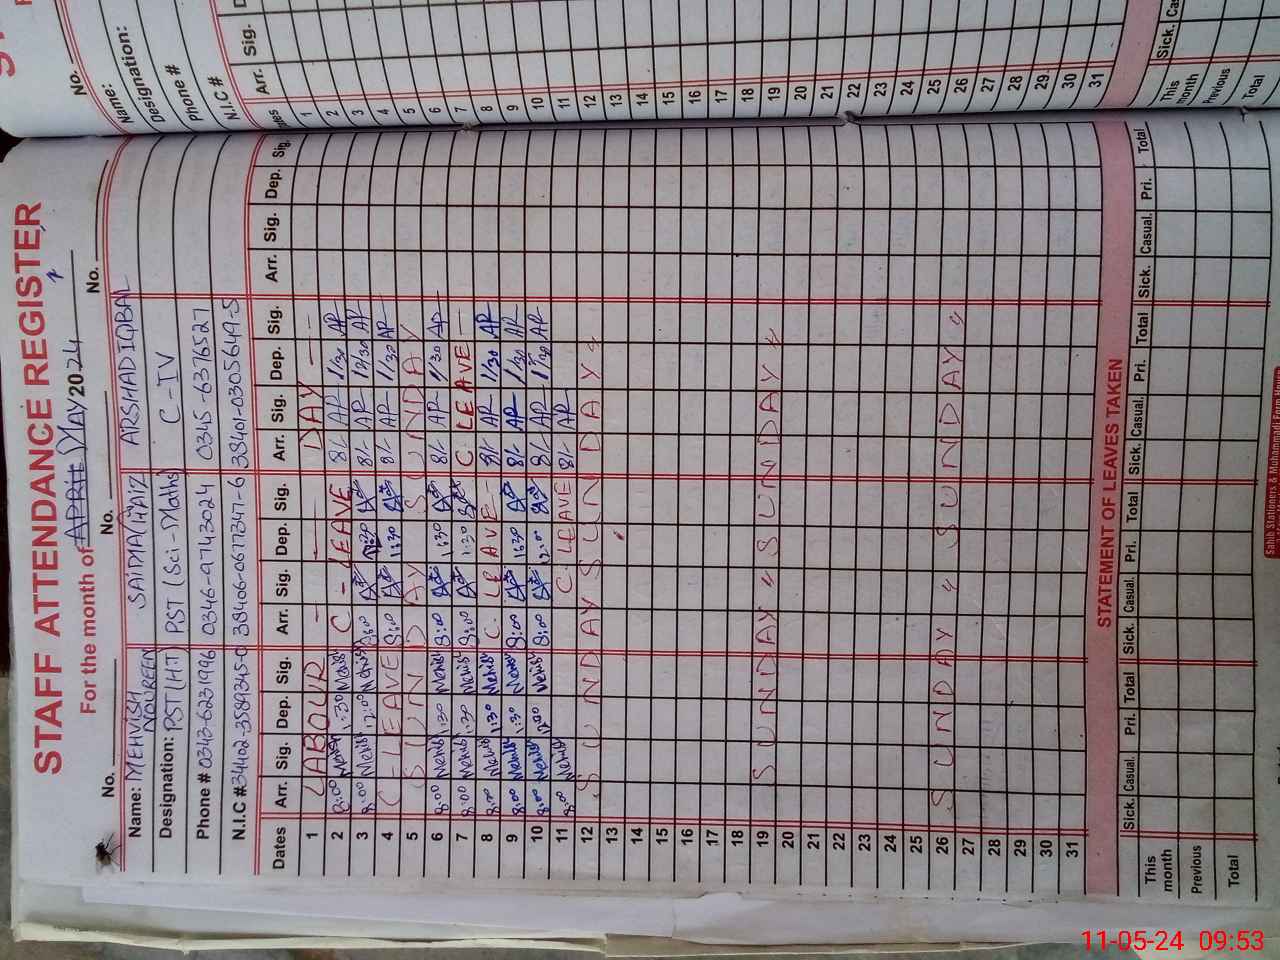 STAFF ATTENDANCE REGISTER
For the month of APRIL MAY 2024
No. No. No.
Name: MEHVISH NOUREEN SAIMA FAIZ ARSHAD IQBAL
Designation: PST (H.T) PST (Sci-Maths) C-IV
Phone # 0343-6231996 0346-9743024 0345-6376527
N.I.C # 34402-3589345-0 38406-0677347-6 38401-0305649-5
Dates Arr. Sig. Dep. Sig. Arr. Sig. Dep. Sig. Arr. Sig. Dep. Sig. Arr. Sig. Dep. Sig.
1 LABOUR DAY
2 8:00 Mehvish 1:30 Mehvish C - LEAVE 8/- AP 1/30 AP
3 8:00 Mehvish 12:00 Mehvish 8:00 12:30 8/- AP 12/30 AP
4 C - LEAVE 8:00 1:30 8/- AP 1/30 AP
5 SUNDAY SUNDAY
6 8:00 Mehvish 1:30 Mehvish 8:00 1:30 8/- AP 1/30 AP
7 8:00 Mehvish 1:30 Mehvish 8:00 1:30 C LEAVE
8 8:00 Mehvish 1:30 Mehvish C. LEAVE 8/- AP 1/30 AP
9 8:00 Mehvish 1:30 Mehvish 8:00 1:30 8/- AP 1/30 AP
10 8:00 Mehvish 12:00 Mehvish 8:00 12:00 8/- AP AP
11 8:00 Mehvish C LEAVE 8/- AP
12 SUNDAY SUNDAY "
13
14
15
16
17
18
19 SUNDAY " SUNDAY "
20
21
22
23
24
25
26 SUNDAY " SUNDAY "
27
28
29
30
31
STATEMENT OF LEAVES TAKEN
Sick. Casual. Pri. Total Sick. Casual. Pri. Total Sick. Casual. Pri. Total Sick. Casual. Pri. Total
This month
Previous
Total
No.
Name:
Designation:
Phone #
N.I.C #
Arr. Sig.
1
2
3
4
5
6
7
8
9
10
11
12
13
14
15
16
17
18
19
20
21
22
23
24
25
26
27
28
29
30
31
Sick.
This month
Previous
Total
11-05-24 09:53